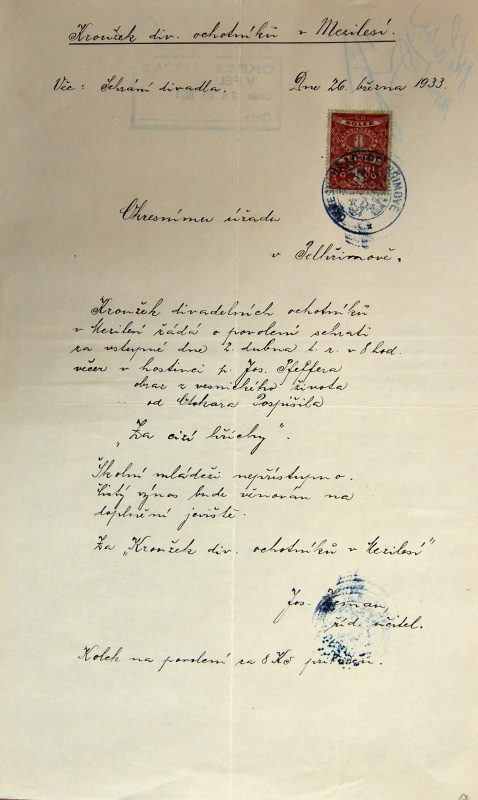 Kroužek div. ochotníků v Mezilesí.
Věc: Sehrání divadla. Dne 26. března 1933.
KOLEK
8
Okresnímu úřadu
v Pelhřimově.
Kroužek divadelních ochotníků
v Mezilesí žádá o povolení sehrati
za vstupné dne 2. dubna t. r. v 8 hod.
večer v hostinci p. Jos. Pfeffera
obraz z vesnického života
od Otokara Pospíšila
„Za cizí hříchy".
Školní mládeži nepřístupno.
Čistý výnos bude věnován na
doplnění jeviště.
Za „Kroužek div. ochotníků v Mezilesí"
Jos. Zeman,
říd. učitel.
Kolek na povolení za 8 Kč přiložen.